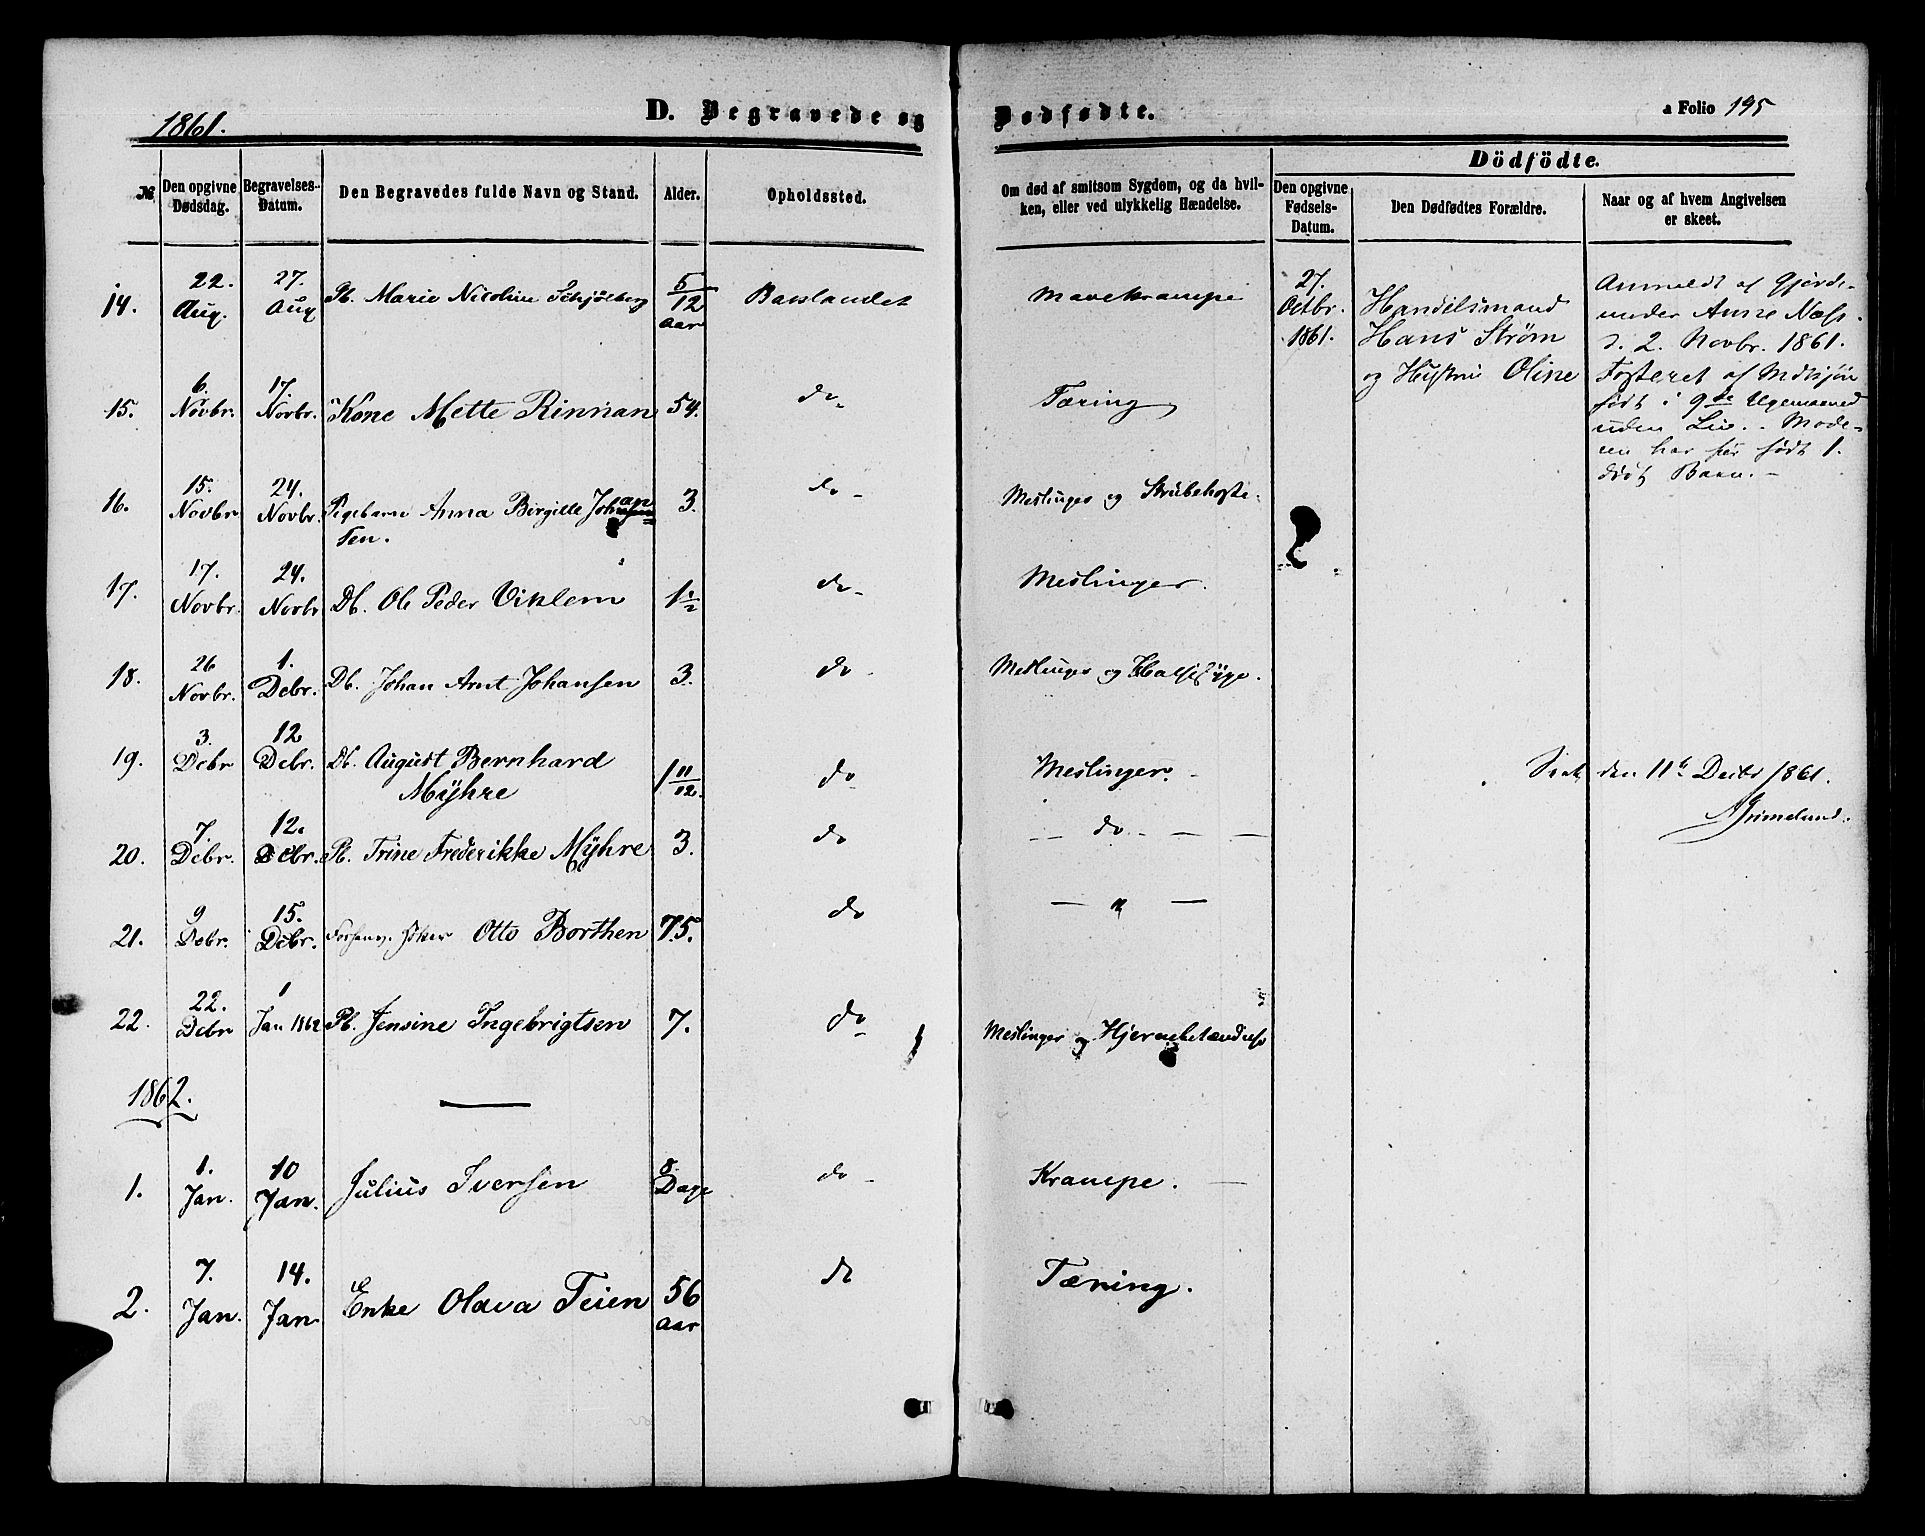 1861.
D. Begravede og Dødfødte.
a Folio 195
№
Den opgivne Dødsdag.
Begravelses-Datum.
Den Begravedes fulde Navn og Stand.
Alder.
Opholdssted.
Om død af smitsom Sygdom, og da hvil-
ken, eller ved ulykkelig Hændelse.
Dödfödte.
Den opgivne Fødsels-Datum.
Den Dødfødtes Forældre.
Naar og af hvem Angivelsen er skeet.
14. 22. Aug. 27. Aug Pb. Marie Nicoline Schjølberg 5/12 aar Baklandet Mavekrampe
27. Octbr. 1861.
Handelsmand
Hans Strøm
og Hustru Oline
Anmeldt af Gjorde-
moder Anne Næss.
d. 2. Novbr. 1861.
Fosteret af
født i 9de
uden Liv. - Mode-
ren har før født 1.
dødt Barn. -
15. 6. Novbr. 17. Novbr. Kone Mette Rinnan 54. do- Tæring
16. 15. Novbr 24. Novbr. Pigebarn Anna Birgitte Johan
sen. 3. do - Meslinger og Strubehoste.
17. 17. Novbr. 24. Novbr Db. Ole Peder Viklem 1½ do- Meslinger.
18. 26 Novbr. 1. Debr. Db. Johan Arnt Johansen 3. do- Meslinger og Halssyge.
19. 3. Debr 12 Debr. Db. August Bernhard
Myhre 1 11/12. do- Meslinger. -
den 11te Decbr 1861.
Grimelund.
20. 7. Debr. 12. Debr. Pb. Trine Frederikke Myhre 3. do - do - - -
21. 9 Debr. 15. Debr. Otto Borthen 75. do — " —
22. 22. Debr 1 Jan 1862 Pb. Jensine Ingebrigtsen 7. do- Meslinger og Hjernebetændelse
1862.
1. 1. Jan. 10 Jan. Julius Iversen 8 Dage do - Krampe. -
2. 7. Jan. 14. Jan. Enke Olava Teien 56 aar do Tæring.